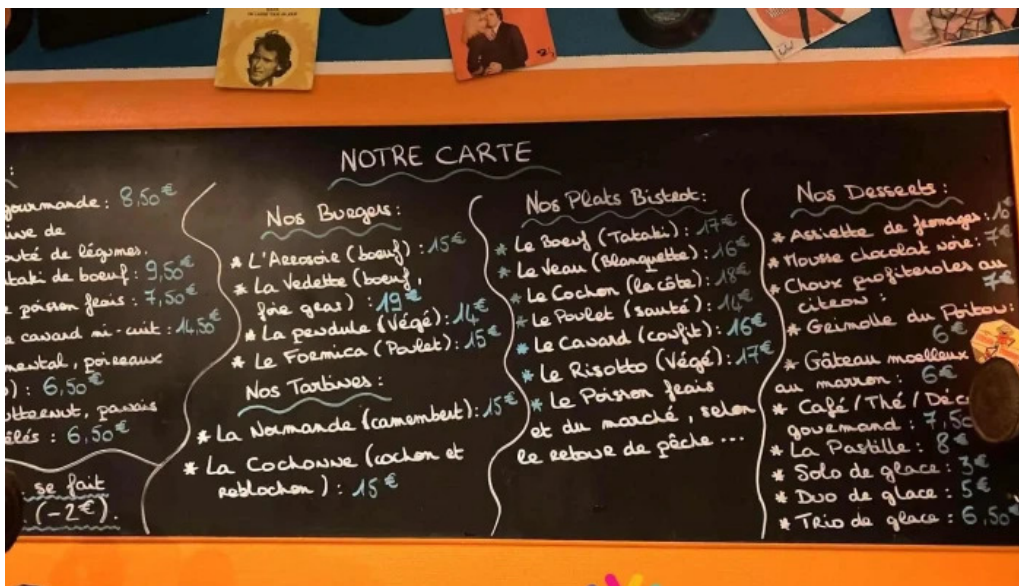 NOTRE CARTE
:
gourmande : 8,50€
de
de légumes.
de boeuf : 9,50€
poisson frais : 7,50€
canard mi-cuit : 14,50€
poireaux
) : 6,50€
panais
: 6,50€
se fait
(-2€).
Nos Burgers :
* L'Arrosoir (boeuf) : 15€
* La Vedette (boeuf,
foie gras) : 19€
* La pendule (Végé) : 14€
* Le Formica (Poulet) : 15€
Nos Tartines :
* La Normande (camembert) : 15€
* La Cochonne (cochon et
reblochon) : 15€
Nos Plats Bistrot :
* Le Boeuf (Tataki) : 17€
* Le Veau (Blanquette) : 16€
* Le Cochon (la côte) : 18€
* Le Poulet (sauté) : 14€
* Le Canard (confit) : 16€
* Le Risotto (Végé) : 17€
* Le Poisson frais
et du marché, selon
le retour de pêche ...
Nos Desserts :
* Assiette de fromages :
* Mousse chocolat noir : 7€
* Choux profiteroles au
citron : 7€
* Grimolle du Poitou :
6€
* Gâteau moelleux
au marron : 6€
* Café / Thé / Déc
gourmand : 7,50
* La Pastille : 8€
* Solo de glace : 3€
* Duo de glace : 5€
* Trio de glace : 6,50€